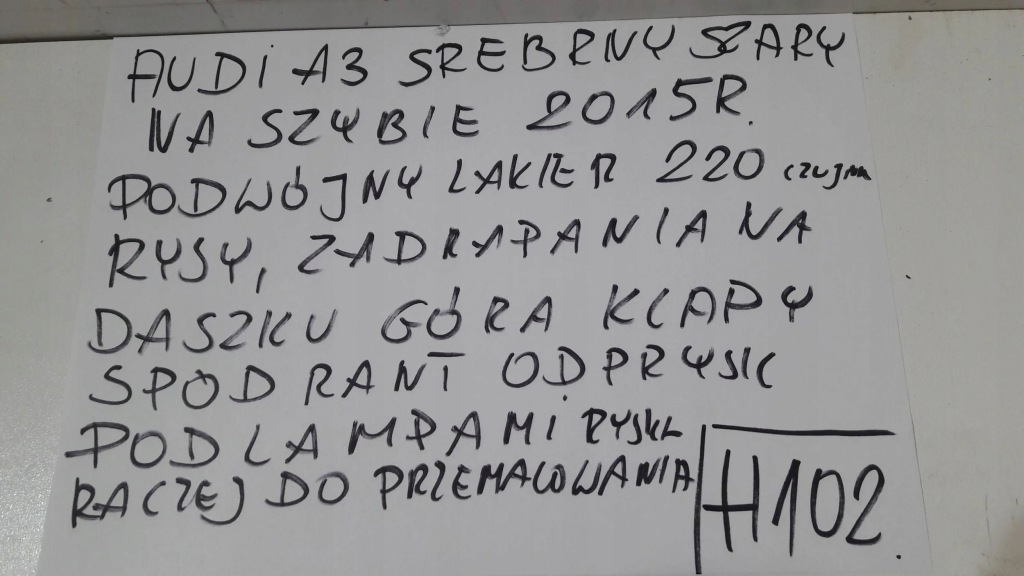 AUDI A3 SREBRNY SZARY
NA SZYBIE 2015R.
PODWÓJNY LAKIER 220 czujnik
RYSY, ZADRAPANIA NA
DASZKU GÓRA KLAPY
SPÓD RANT ODPRYSK
POD LAMPAMI RYSKI
RACZEJ DO PRZEMALOWANIA
H102.